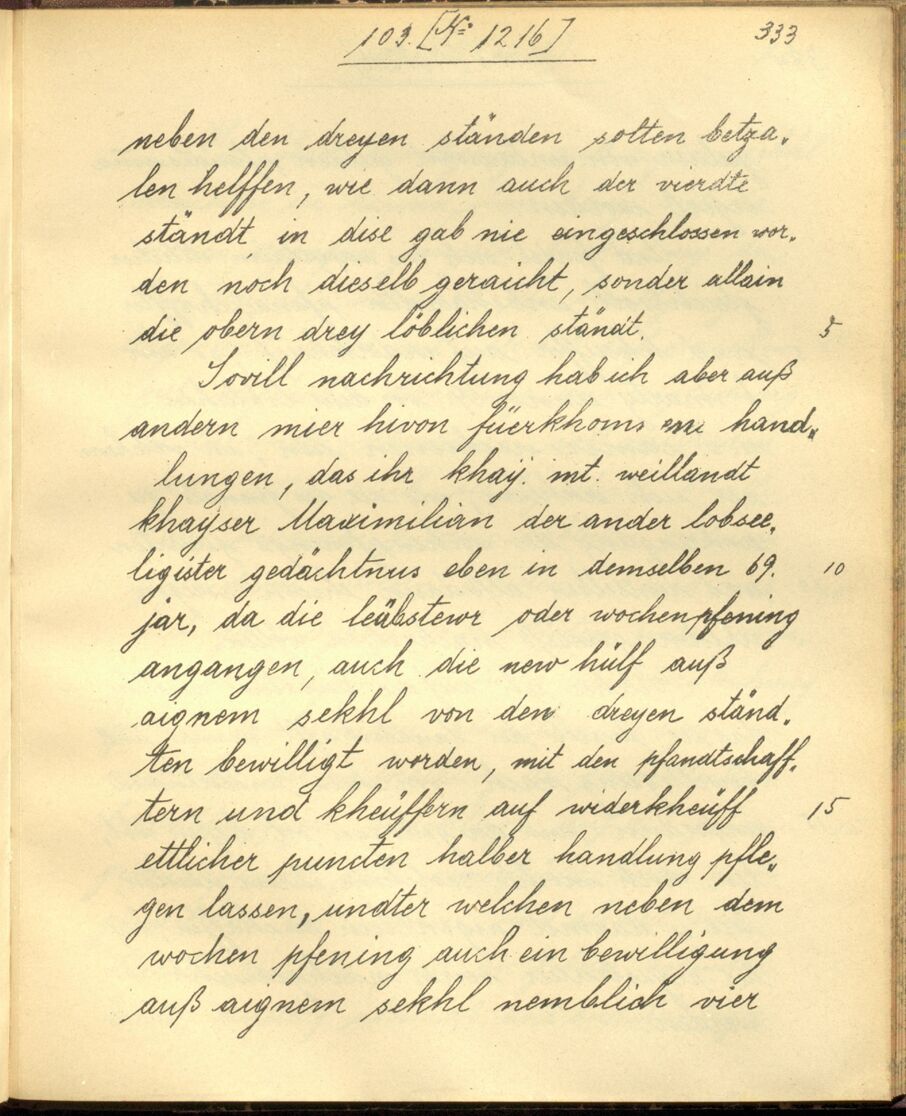 103. [N⁰ 1216]
333
neben den dreyen ständen solten betza„
len helffen, wie dann auch der vierdte
ständt in dise gab nie eingeschlossen wor„
den noch dieselb geraicht, sonder allain
die obern drey löblichen ständt.
5
Sovill nachrichtung hab ich aber auß
andern mier hivon füerkhomenen hand„
lungen, das ihr khay. mt. weillandt
khayser Maximilian der ander lobsee„
ligister gedächtnus eben in demselben 69.
10
jar, da die leibstewr oder wochenpfening
angangen, auch die new hülf auß
aignem sekhl von den dreyen ständ„
ten bewilligt worden, mit den pfandtschaff„
tern und kheüffern auf widerkheüff
15
ettlicher puncten halber handlung pfle„
gen lassen, undter welchen neben dem
wochen pfening auch ein bewilligung
auß aignem sekhl nemblich vier